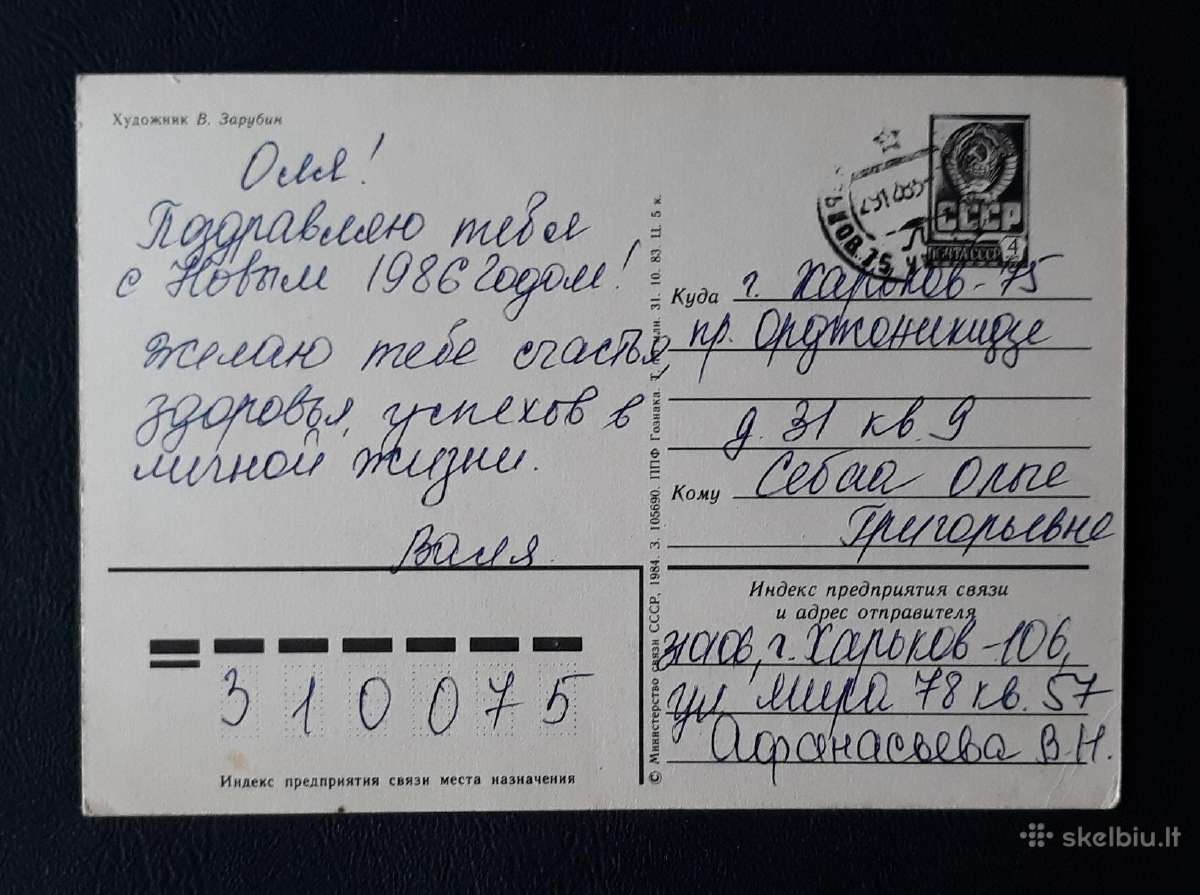 Художник В. Зарубин
Оля!
Поздравляю тебя
с Новым 1986 годом!
Желаю тебе счастья,
здоровья, успехов в
личной жизни.
Валя.
СССР
4
ПОЧТА СССР
Куда г. Харьков-75
пр. Орджоникидзе
д. 31 кв. 9
Кому Себаа Ольге
Григорьевне
Индекс предприятия связи
и адрес отправителя
310106, г. Харьков-106,
ул Мира 78 кв. 57
Афанасьева В.Н.
310075
Индекс предприятия связи места назначения
© Министерство связи СССР, 1984. З. 105690. ППФ Гознака. 31. 10. 83. Ц. 5 к.
skelbiu.lt